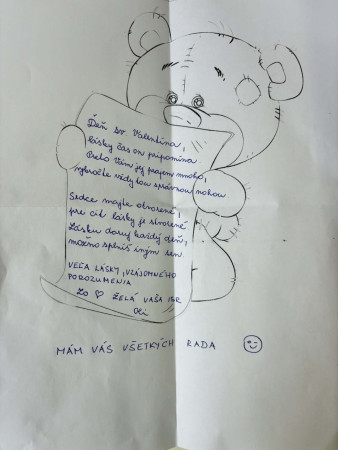 Deň sv. Valentína,
lásky čas on pripomína.
Preto Vám jej prajem mnoho,
vykročte vždy tou správnou nohou
Srdce majte otvorené,
pre cit lásky je stvorené
Lásku daruj každý deň,
možno splníš iným sen.
VEĽA LÁSKY, VZÁJOMNÉHO
POROZUMENIA
Zo ♡ ŽELÁ VAŠA
MÁM VÁS VŠETKÝCH RADA